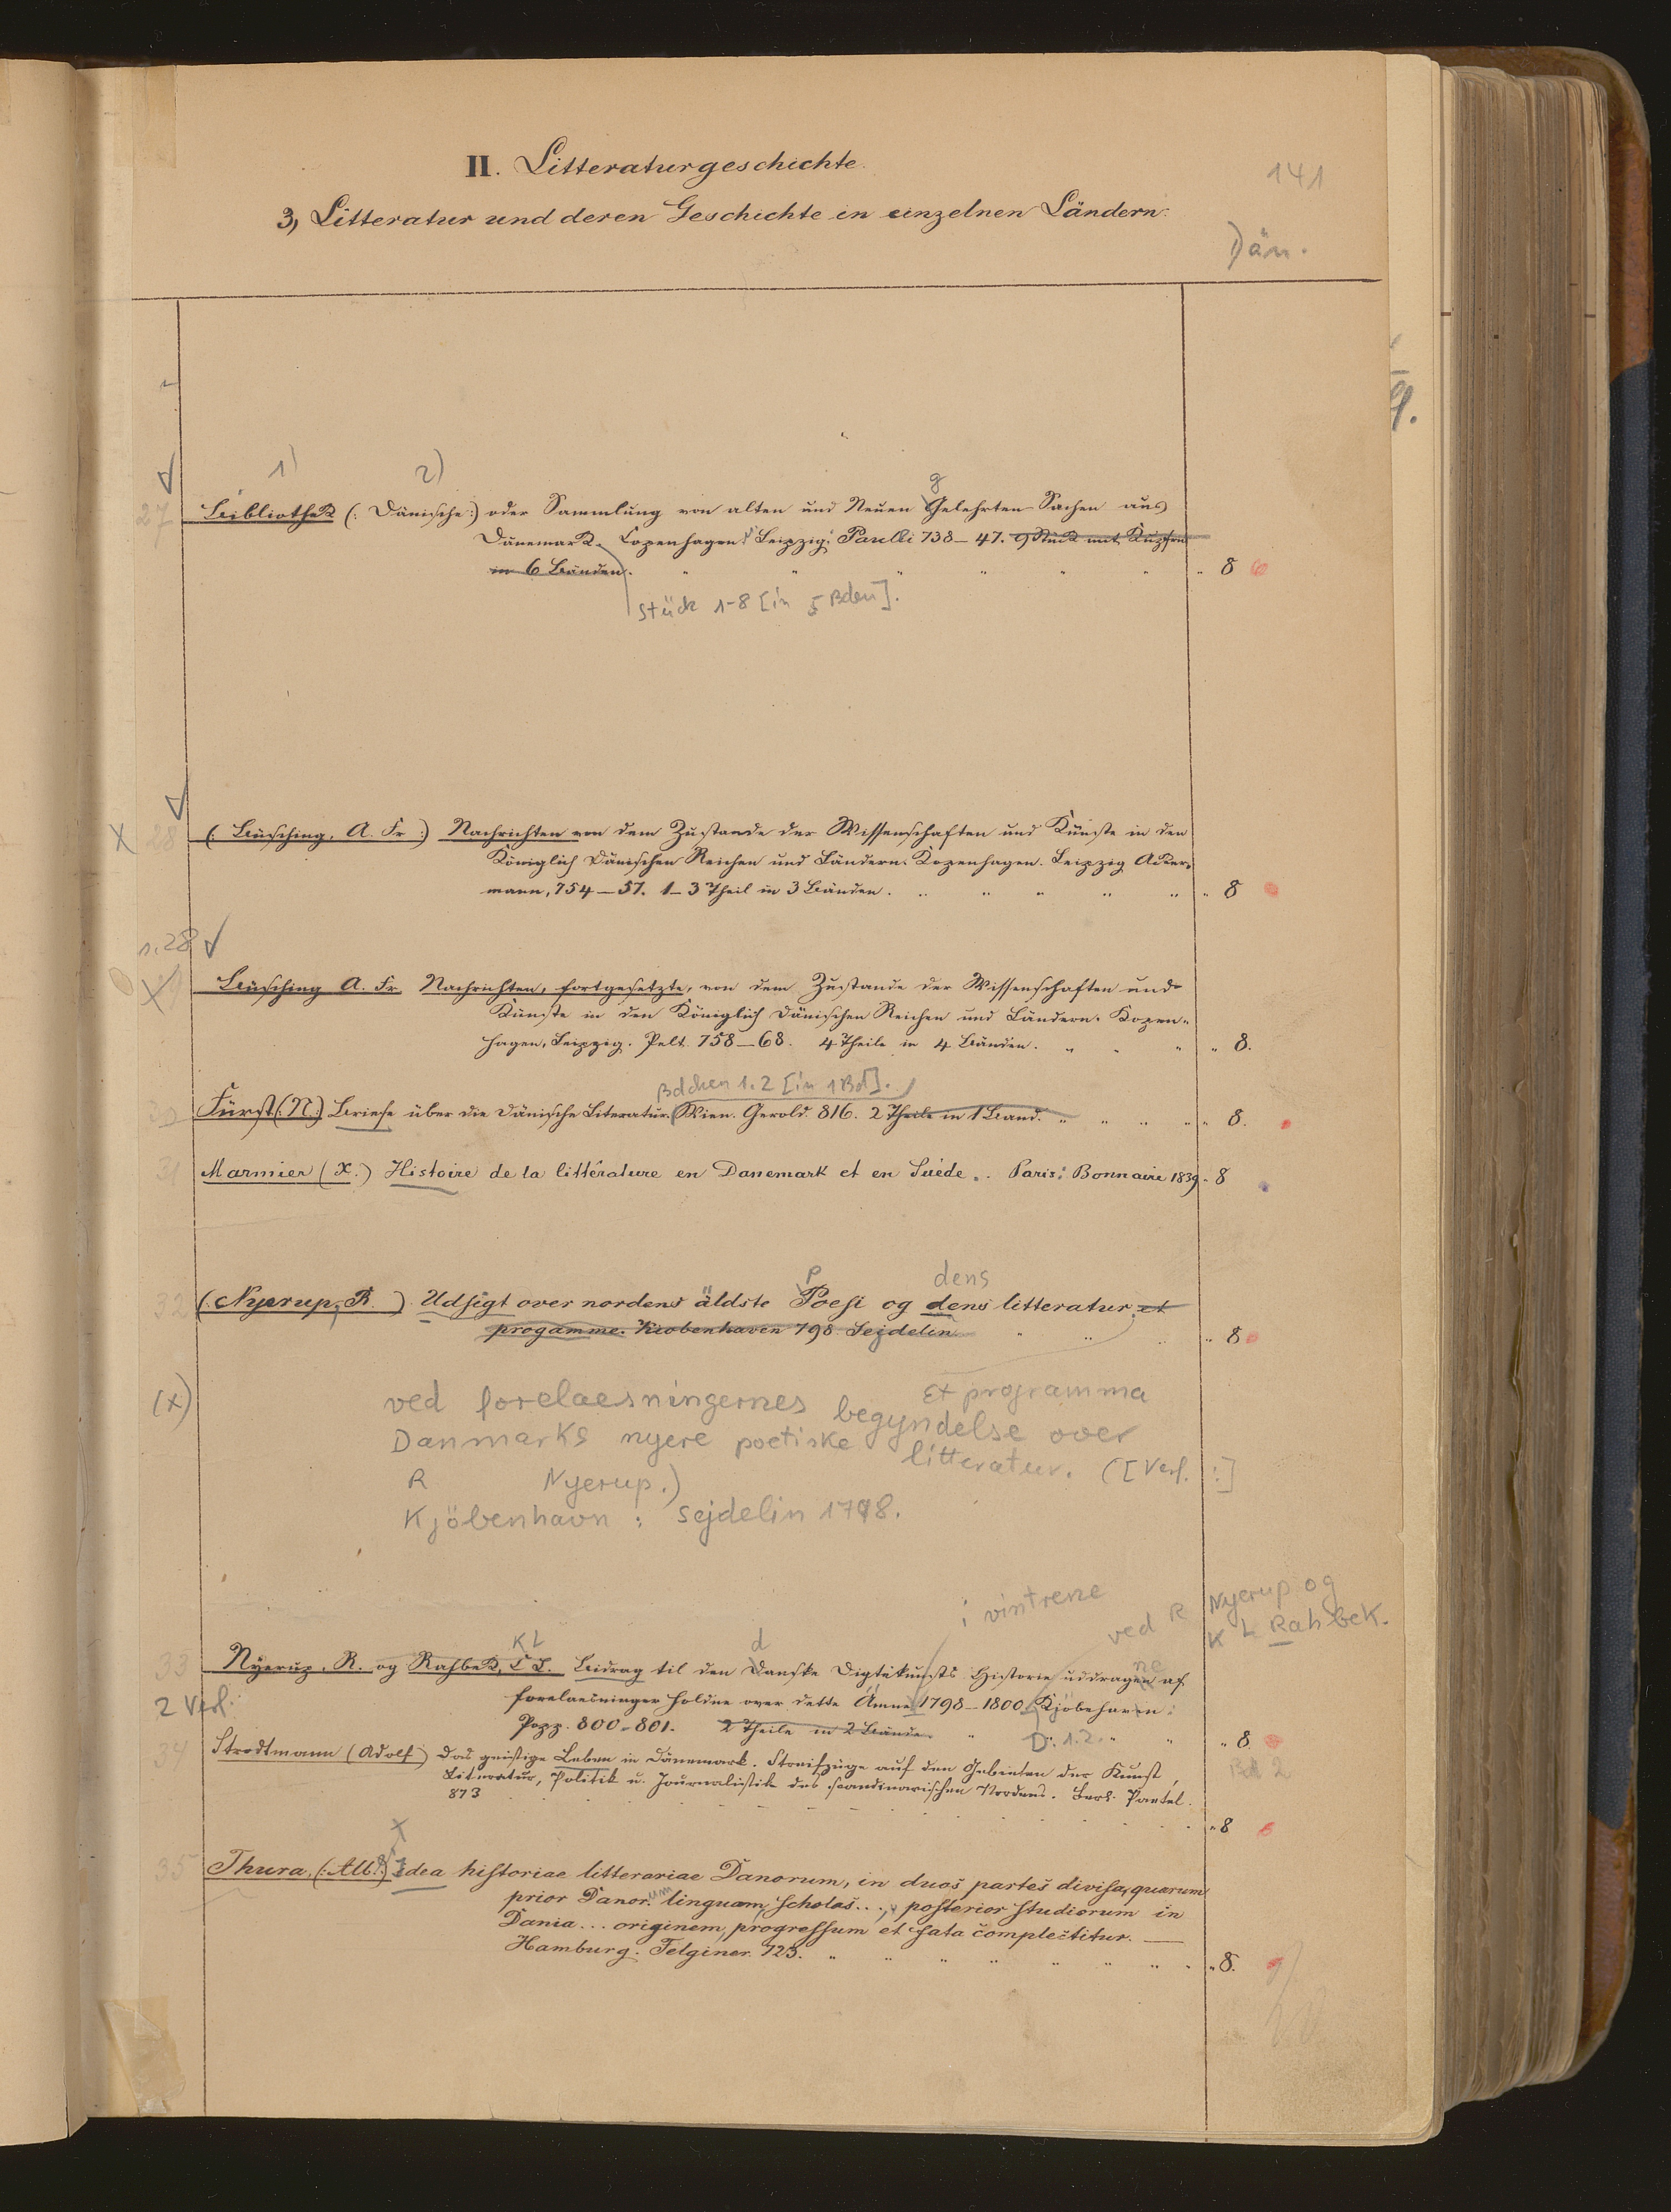 II. Litteraturgeschichte.
141
3) Litteratur und deren Geschichte in einzelnen Ländern.
Dän.
1) 2) g
27 Bibliothek (: Dänische :) oder Sammlung von alten und Neuen Gelehrten Sachen aus
Dänemark. Copenhagen. Leipzig: Parelli 738–47. 9 Stück mit Kupfern
in 6 Bänden. 8
Stück 1–8 [in 5 Bden].
X 28 (: Büsching, A. Fr :) Nachrichten von dem Zustande der Wissenschaften und Künste in den
Königlich Dänischen Reichen und Ländern. Kopenhagen. Leipzig Acker,
mann, 754–57. 1–3 Theil in 3 Bänden. 8
1.28
Büsching A. Fr. Nachrichten, fortgesetzte, von dem Zustande der Wissenschaften und
Künste in den Königlich Dänischen Reichen und Ländern. Kopen-
hagen, Leipzig. Pelt 758–68. 4 Theile in 4 Bänden. 8.
Bdchen 1.2 [in 1 Bd].
30 Fürst (: N :) Briefe über die Dänische Literatur. Wien. Gerold. 816. 2 Theile in 1 Band. 8.
31 Marmier (X.) Histoire de la littérature en Danemark et en Suède. Paris: Bonnaire 1839. 8
p dens
32 (: Nyerup, R. ) Udsigt over nordens äldste Poesi og dens litteratur et
progamme. Kiobenhaven 798. Sejdelin 8
(x) Et programma
ved forelaesningernes begyndelse over
Danmarks nyere poetiske litteratur. ([Verf. :]
R Nyerup.)
Kjöbenhavn : Sejdelin 1798.
i vintrene
ved R Nyerup og
K L Rahbek.
KL d ne
33 Nyerup, R. og Rahbek, C L. Bidrag til den Danske Digtekunsts Historie uddragen af
2 Verf. forelaesninger holdne over dette Ämne 1798–1800. Kjöbehavn:
Popp. 800–801. 2 Theile in 2 Bände. D. 1.2. 8
34 Strodtmann (Adolf) Das geistige Leben in Dänemark. Streifzüge auf den Gebieten der Kunst, Bd 2
Literatur, Politik u. Journalistik des scandinavischen Nordens. Berl. Paetel.
873 8
35 Thura, (: Alb. :) Idea historiae litterariae Danorum, in duos partes divisa, quarum
prior Danor.um linguam, scholas..., posterior studiorum in
Dania... originem, progressum et fata complectitur. —
Hamburg. Felginer 723. 8.